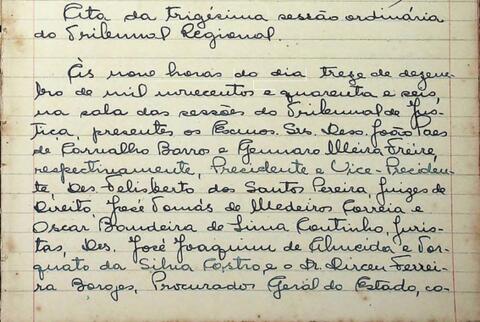 Ata da trigésima sessão ordinária
do Tribunal Regional.
Às nove horas do dia treze de dezem-
bro de mil novecentos e quarenta e seis,
na sala das sessões do Tribunal de Jus-
tiça, presentes os Exmos. Srs. Des. João Paes
de Carvalho Barros e Gennaro Meira Freire,
respectivamente, Presidente e Vice-Presiden-
te, Des. Felisberto dos Santos Pereira, Juizes de
Direito, José Tomás de Medeiros Correia e
Oscar Bandeira de Lima Coutinho, Juris-
tas, Des. José Joaquim de Almeida e Tor-
quato da Silva Castro, e o Dr. Dirceu Ferrei-
ra Borges, Procurador Geral do Estado, co-